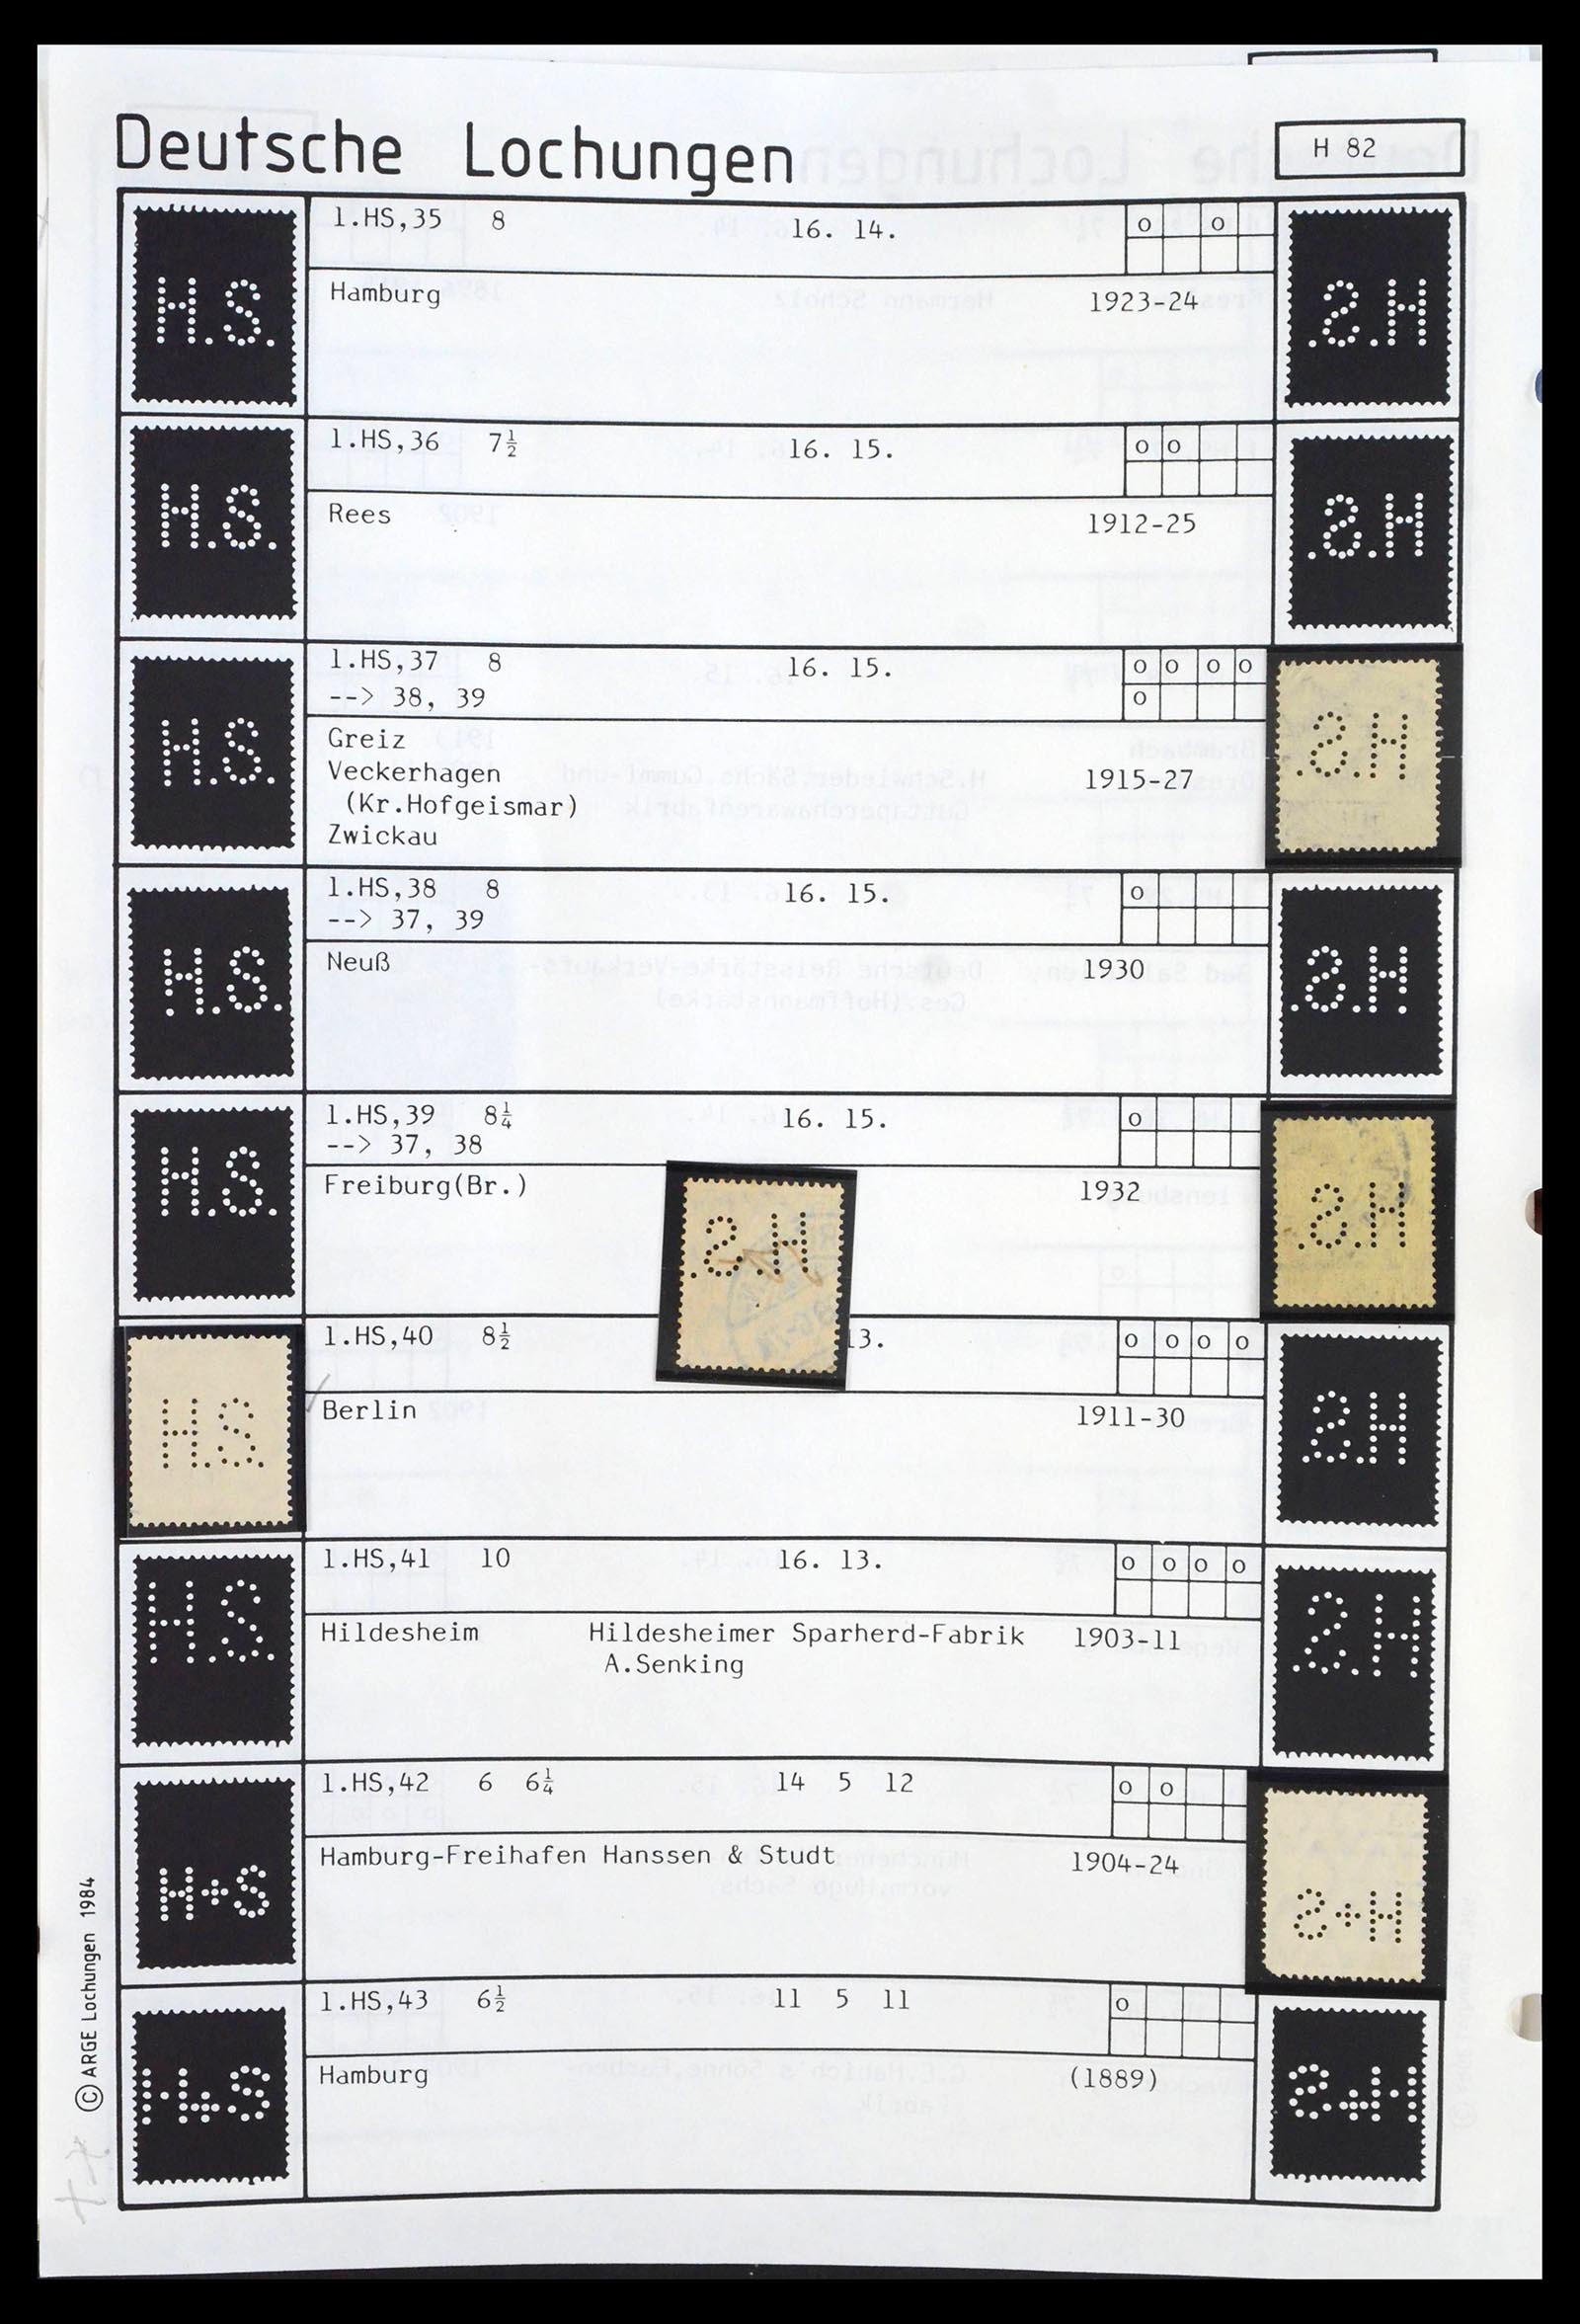 Deutsche Lochungen
H 82
H.S.
1.HS,35 8 16. 14. o o
Hamburg 1923-24
H.S.
1.HS,36 7½ 16. 15. o o
Rees 1912-25
H.S.
1.HS,37 8 16. 15. o o o o
--> 38, 39 o
Greiz
Veckerhagen 1915-27
(Kr.Hofgeismar)
Zwickau
H.S.
1.HS,38 8 16. 15. o
--> 37, 39
Neuß 1930
H.S.
1.HS,39 8¼ 16. 15. o
--> 37, 38
Freiburg(Br.) 1932
H.S.
1.HS,40 8½ 13. o o o o
Berlin 1911-30
H.S.
1.HS,41 10 16. 13. o o o o
Hildesheim Hildesheimer Sparherd-Fabrik 1903-11
A.Senking
H+S
1.HS,42 6 6¼ 14 5 12 o o
Hamburg-Freihafen Hanssen & Studt 1904-24
H+S
1.HS,43 6½ 11 5 11 o
Hamburg (1889)
© ARGE Lochungen 1984